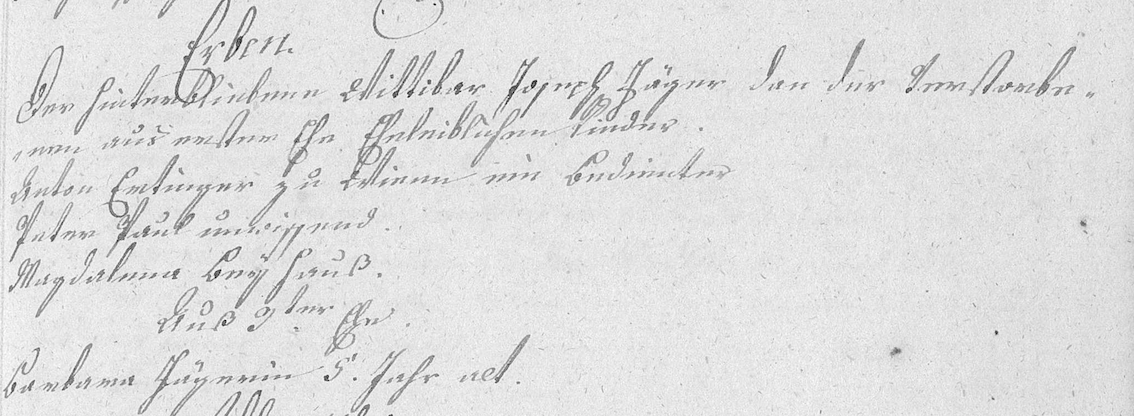 Erben.
Der hinterbliebene Wittiber Joseph Jäger dan der Verstorbe-
nen aus erster Ehe Eheleiblichen Kinder.
Anton Ertinger zu Wienn ein Bedienter
Peter Paul unwissend.
Magdalena bey Hauß.
Auß 2ter Ehe.
Barbara Jägerin 5. Jahr alt.